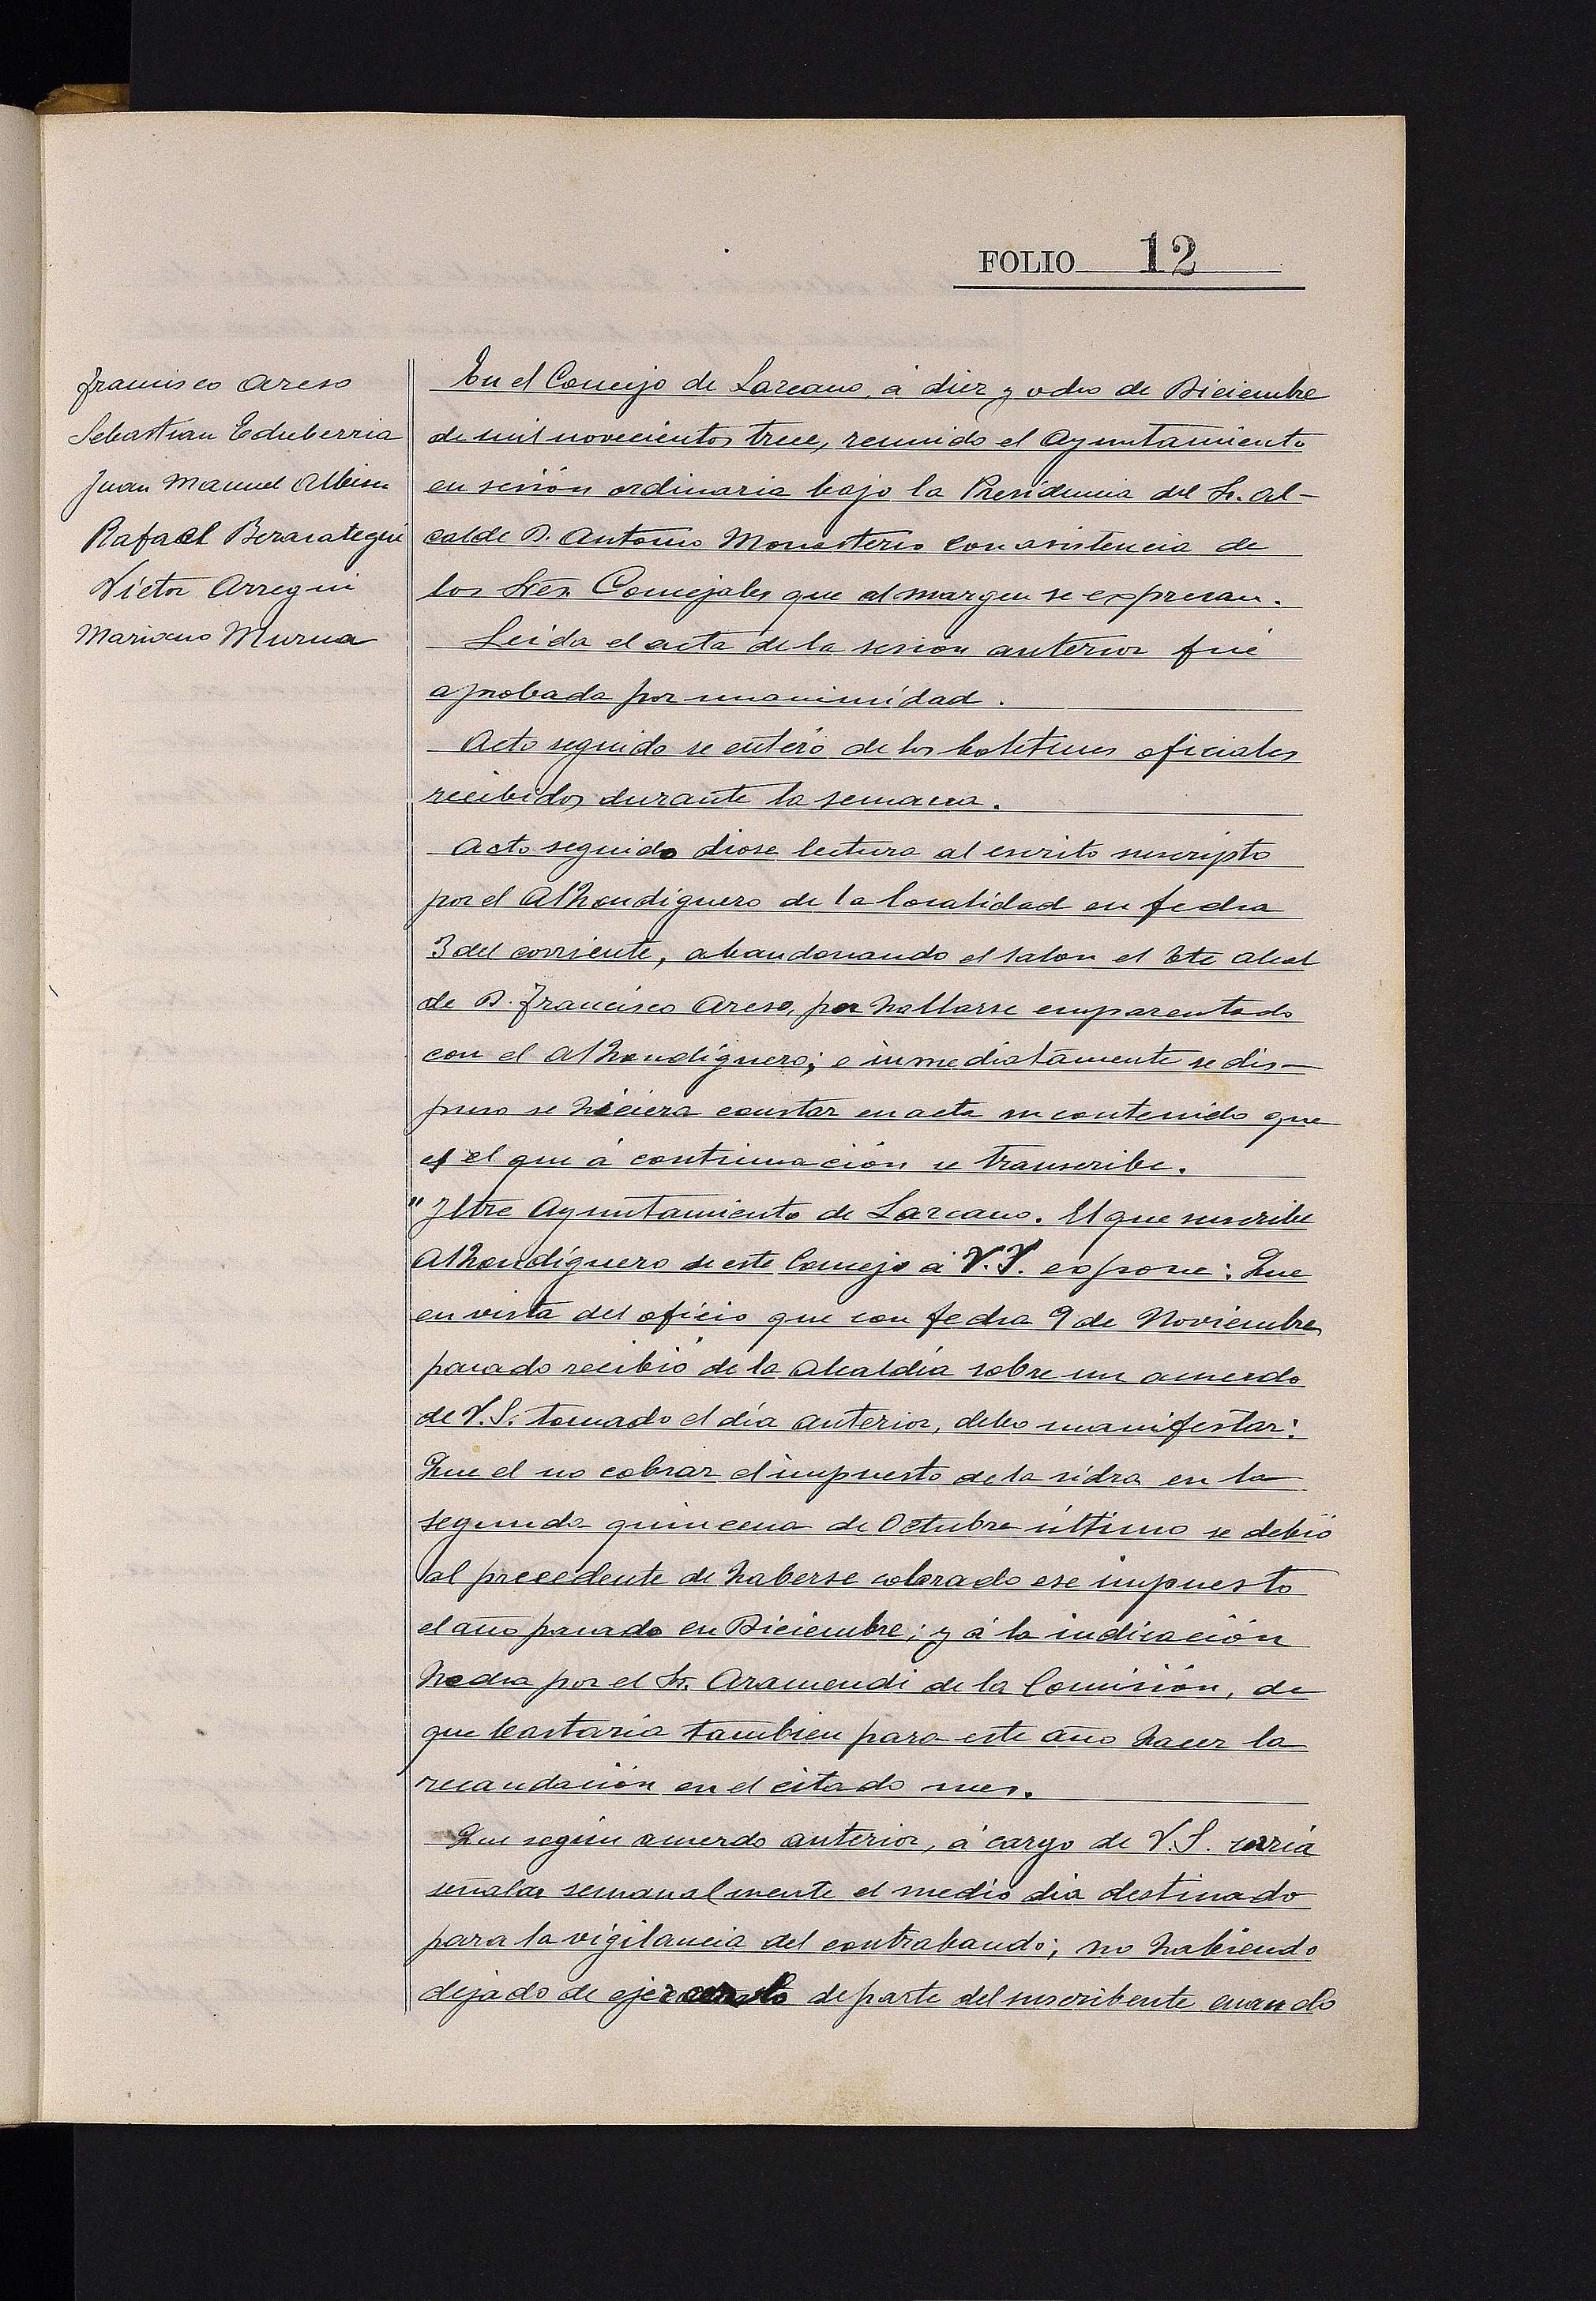 FOLIO 12
Francisco Areso
Sebastián Echeberria
Juan Manuel Albisu
Rafael Berasategui
Víctor Arregui
Mariano Murua
En el Concejo de Lazcano, á diez y ocho de Diciembre
de mil novecientos trece, reunido el Ayuntamiento
en sesión ordinaria bajo la Presidencia del Sr. Al-
calde D. Antonio Monasterio con asistencia de
los Sres. Concejales que al margen se expresan.
Leida el acta de la sesión anterior fué
aprobada por unanimidad.
Acto seguido se enteró de los boletines oficiales
recibidos durante la semana.
Acto seguido diose lectura al escrito suscripto
por el Alhondiguero de la localidad en fecha
3 del corriente, abandonando el salon el Tte Alcal
de D. Francisco Areso, por hallarse emparentado
con el Alhondiguero; e inmediatamente se dis-
puso se hiciera constar en acta su contenido que
es el que á continuación se transcribe.
"Iltre Ayuntamiento de Lazcano. El que suscribe
Alhondiguero de este Concejo á V.S. expone: Que
en vista del oficio que con fecha 9 de Noviembre
pasado recibió de la Alcaldía sobre un acuerdo
de V.S. tomado el día anterior, debo manifestar:
Que el no cobrar el impuesto de la sidra en la
segunda quincena de Octubre último se debió
al precedente de haberse cobrado ese impuesto
el año pasado en Diciembre; y á la indicación
hecha por el Sr. Aramendi de la Comisión, de
que bastaria tambien para este año hacer la
recaudación en el citado mes.
Que según acuerdo anterior, á cargo de V.S. corría
señalar semanalmente el medio dia destinado
para la vigilancia del contrabando; no habiendo
dejado de de parte del suscribente cuando